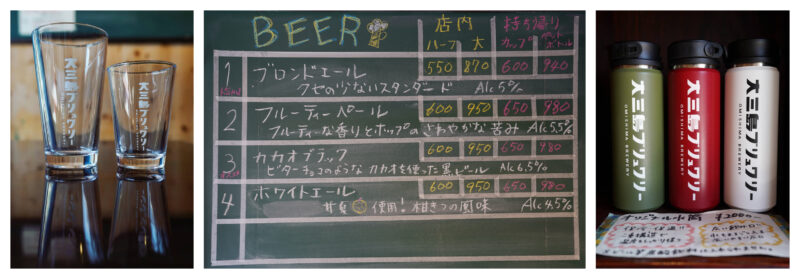 大三島ブリュワリー
大三島ブリュワリー
BEER
店内 持ち帰り
ハーフ 大 カップ ペットボトル
1 ブロンドエール 550 870 600 940
クセの少ないスタンダード Alc5%
2 フルーティーペール 600 950 650 980
フルーティーな香りとホップのさわやかな苦み Alc5.5%
3 カカオブラック 600 950 650 980
ビターチョコのようなカカオを使った黒ビール Alc6.5%
4 ホワイトエール 600 950 650 980
甘夏使用!柑きつの風味 Alc4.5%
大三島ブリュワリー
OMISHIMA BREWERY
大三島ブリュワリー
OMISHIMA BREWERY
大三島ブリュワリー
OMISHIMA BREWERY
オリジナル水筒 ¥2000-